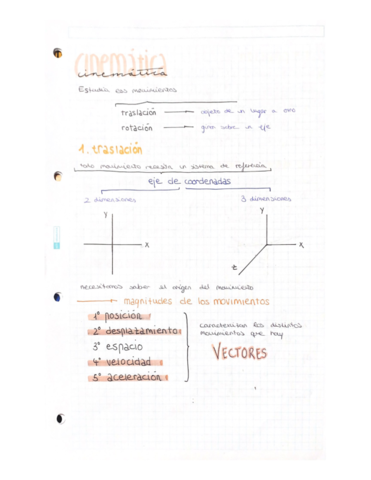 cinemática
cinemática
Estudia los movimientos
traslación objeto de un lugar a otro
rotación giro sobre un eje
1. traslación
todo movimiento necesita un sistema de referencia
eje de coordenadas
2 dimensiones 3 dimensiones
Y Y
X X
z
necesitamos saber el origen del movimiento
magnitudes de los movimientos
1º posición
2º desplazamiento
3º espacio
4º velocidad
5º aceleración
caracterizan los distintos
movimientos que hay
VECTORES